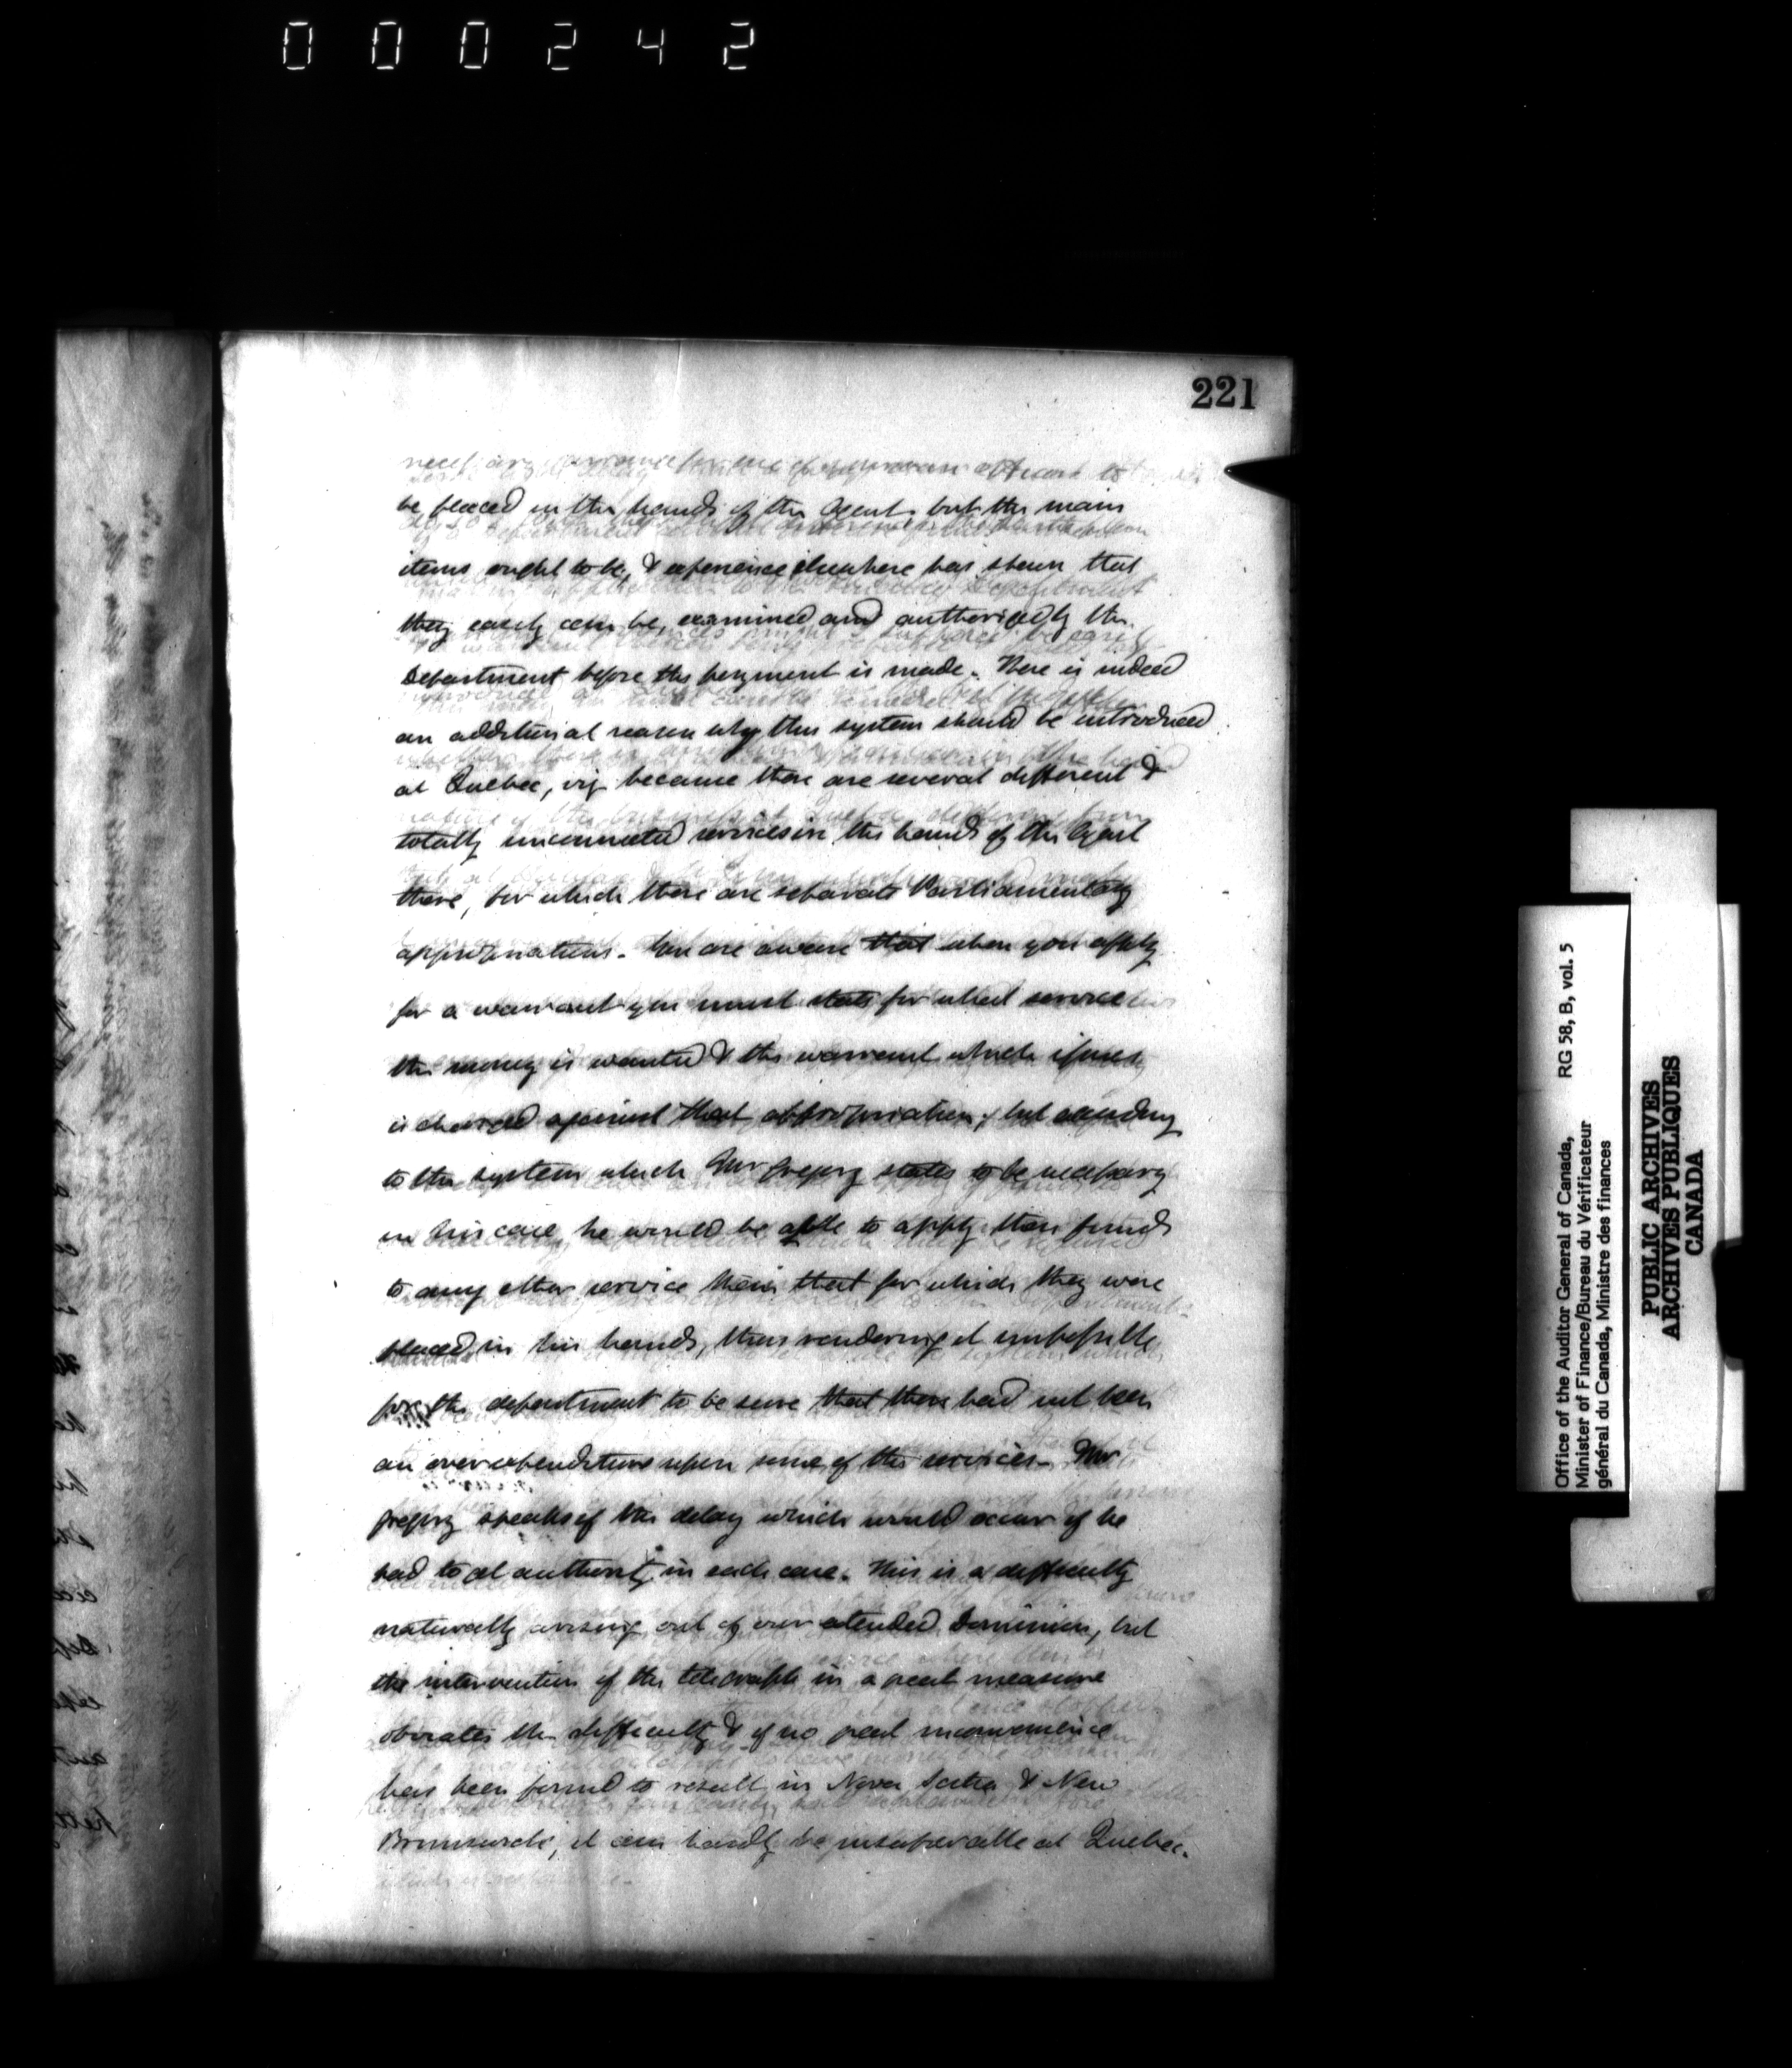 000242
221
be placed in the hands of the Agent, but the main
items ought to be, & experience elsewhere has shewn that
they easily can be, examined and authorized by the
Department before the payment is made. There is indeed
an additional reason why this system should be introduced
at Quebec, viz because there are several different &
totally unconnected services in the hands of the Agent
there, for which there are separate Parliamentary
appropriations. You are aware that when you apply
for a warrant you must state for what service
the money is wanted & the warrant which issues
is charged against that appropriation, but according
to the system which Mr Gregory states to be necessary
in his case, he would be able to apply these funds
to any other service than that for which they were
placed in his hands, thus rendering it impossible
for the department to be sure that there had not been
an over expenditure upon some of the services. Mr
Gregory speaks of the delay which would occur if he
had to get authority in each case. This is a difficulty
naturally arising out of our extended Dominion, but
the intervention of the telegraph in a great measure
obviates the difficulty & if no great inconvenience
has been found to result in Nova Scotia & New
Brunswick, it can hardly be insuperable at Quebec.
Office of the Auditor General of Canada, RG 58, B, vol. 5
Minister of Finance/Bureau du Vérificateur
général du Canada, Ministre des finances
PUBLIC ARCHIVES
ARCHIVES PUBLIQUES
CANADA